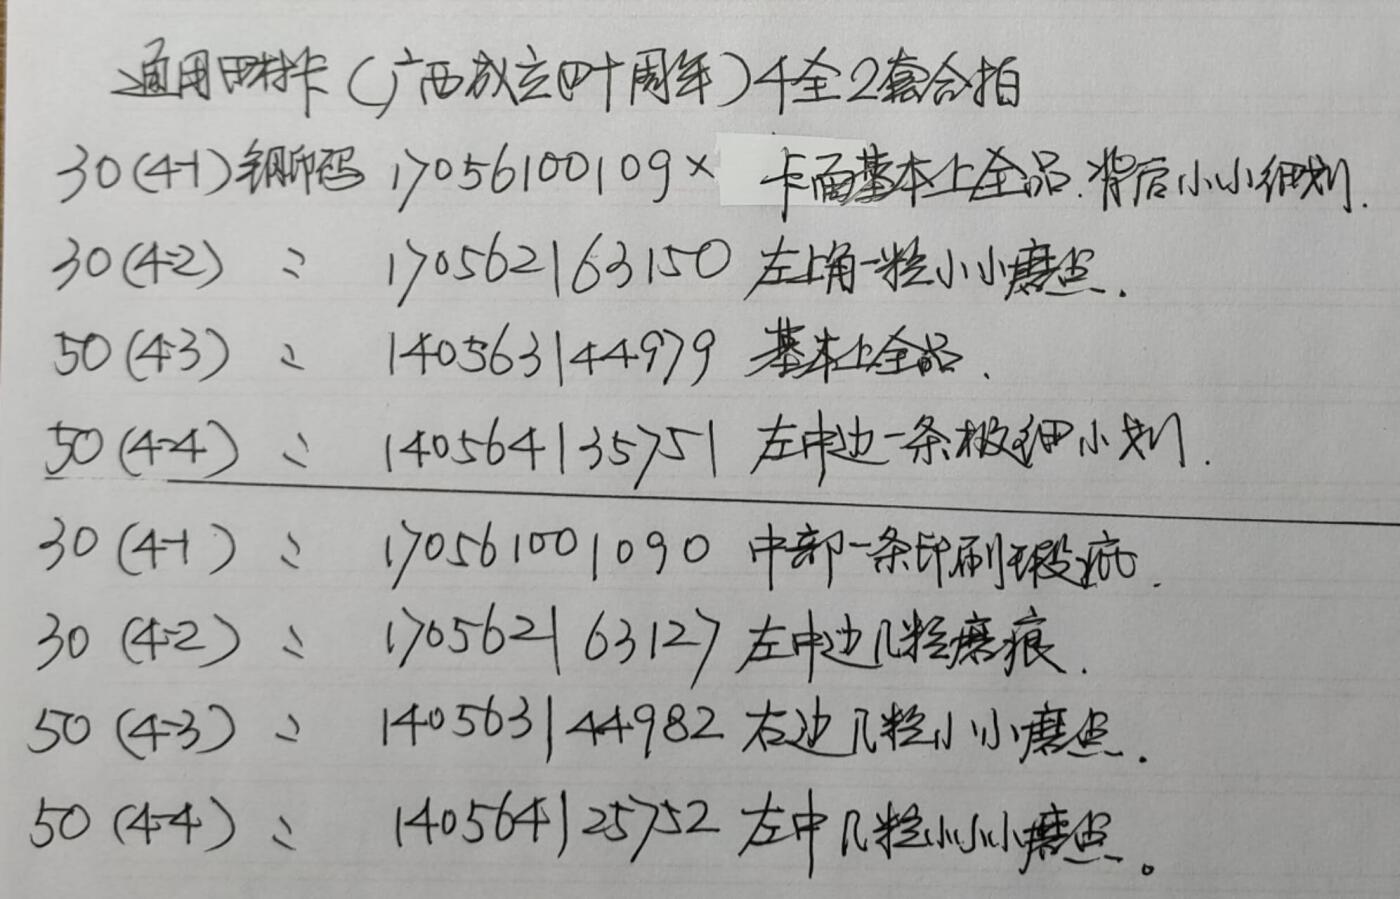 通用田村卡(广西成立四十周年)4全2套合拍
30(4-1)钢印码 17056100109× 卡面基本上全品.背后小小细划.
30(4-2) 〃 170562163150 左上角一粒小小磨点.
50(4-3) 〃 140563144979 基本上全品.
50(4-4) 〃 140564135751 左中边一条极细小划.
30(4-1) 〃 170561001090 中部一条印刷瑕疵.
30(4-2) 〃 170562163127 左中边几粒磨痕.
50(4-3) 〃 140563144982 右边几粒小小磨点.
50(4-4) 〃 140564125752 左中几粒小小小磨点。